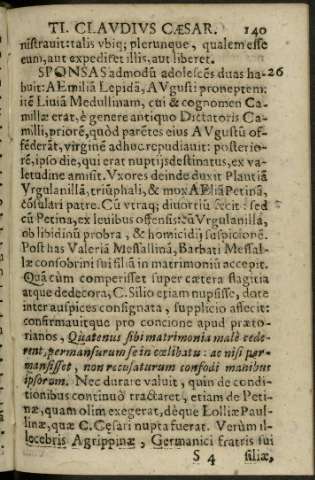 TI. CLAVDIVS CÆSAR. 140
nistrauit: talis vbiq; plerunque, qualem esse
eum, aut expediret illis, aut liberet.
SPONSAS admodũ adolescẽs duas ha- 26
buit: AEmiliã Lepidã, AVgusti proneptem:
itẽ Liuiã Medullinam, cui & cognomen Ca-
millæ erat, è genere antiquo Dictatoris Ca-
milli, priorẽ, quòd parẽtes eius AVgustũ of-
fẽderãt, virginẽ adhuc repudiauit: posterio-
rẽ, ipso die, qui erat nuptijs destinatus, ex va-
letudine amisit. Vxores deinde duxit Plantiã
Vrgulanillã, triũphali, & mox AEliã Petinã,
cõsulari patre. Cũ vtraq; diuortiũ fecit: sed
cũ Petina, ex leuibus offensis: cũ Vrgulanilla,
ob libidinũ probra, & homicidij suspicionẽ.
Post has Valeriã Messallinã, Barbati Messal-
læ consobrini sui filiã in matrimoniũ accepit.
Quã cùm comperisset super cætera flagitia
atque dedecora, C. Silio etiam nupsisse, dote
inter auspices consignata, supplicio affecit:
confirmauitque pro concione apud præto-
rianos, Quatenus sibi matrimonia malè cede-
rent, permansurum se in cælibatu: ac nisi per-
mansisset, non recusaturum confodi manibus
ipsorum. Nec durare valuit, quin de condi-
tionibus continuò tractaret, etiam de Peti-
næ, quam olim exegerat, dèque Lolliæ Paul-
linæ, quæ C. Cęsari nupta fuerat. Verùm il-
locebris Agrippinæ, Germanici fratris sui
S 4 filiæ,